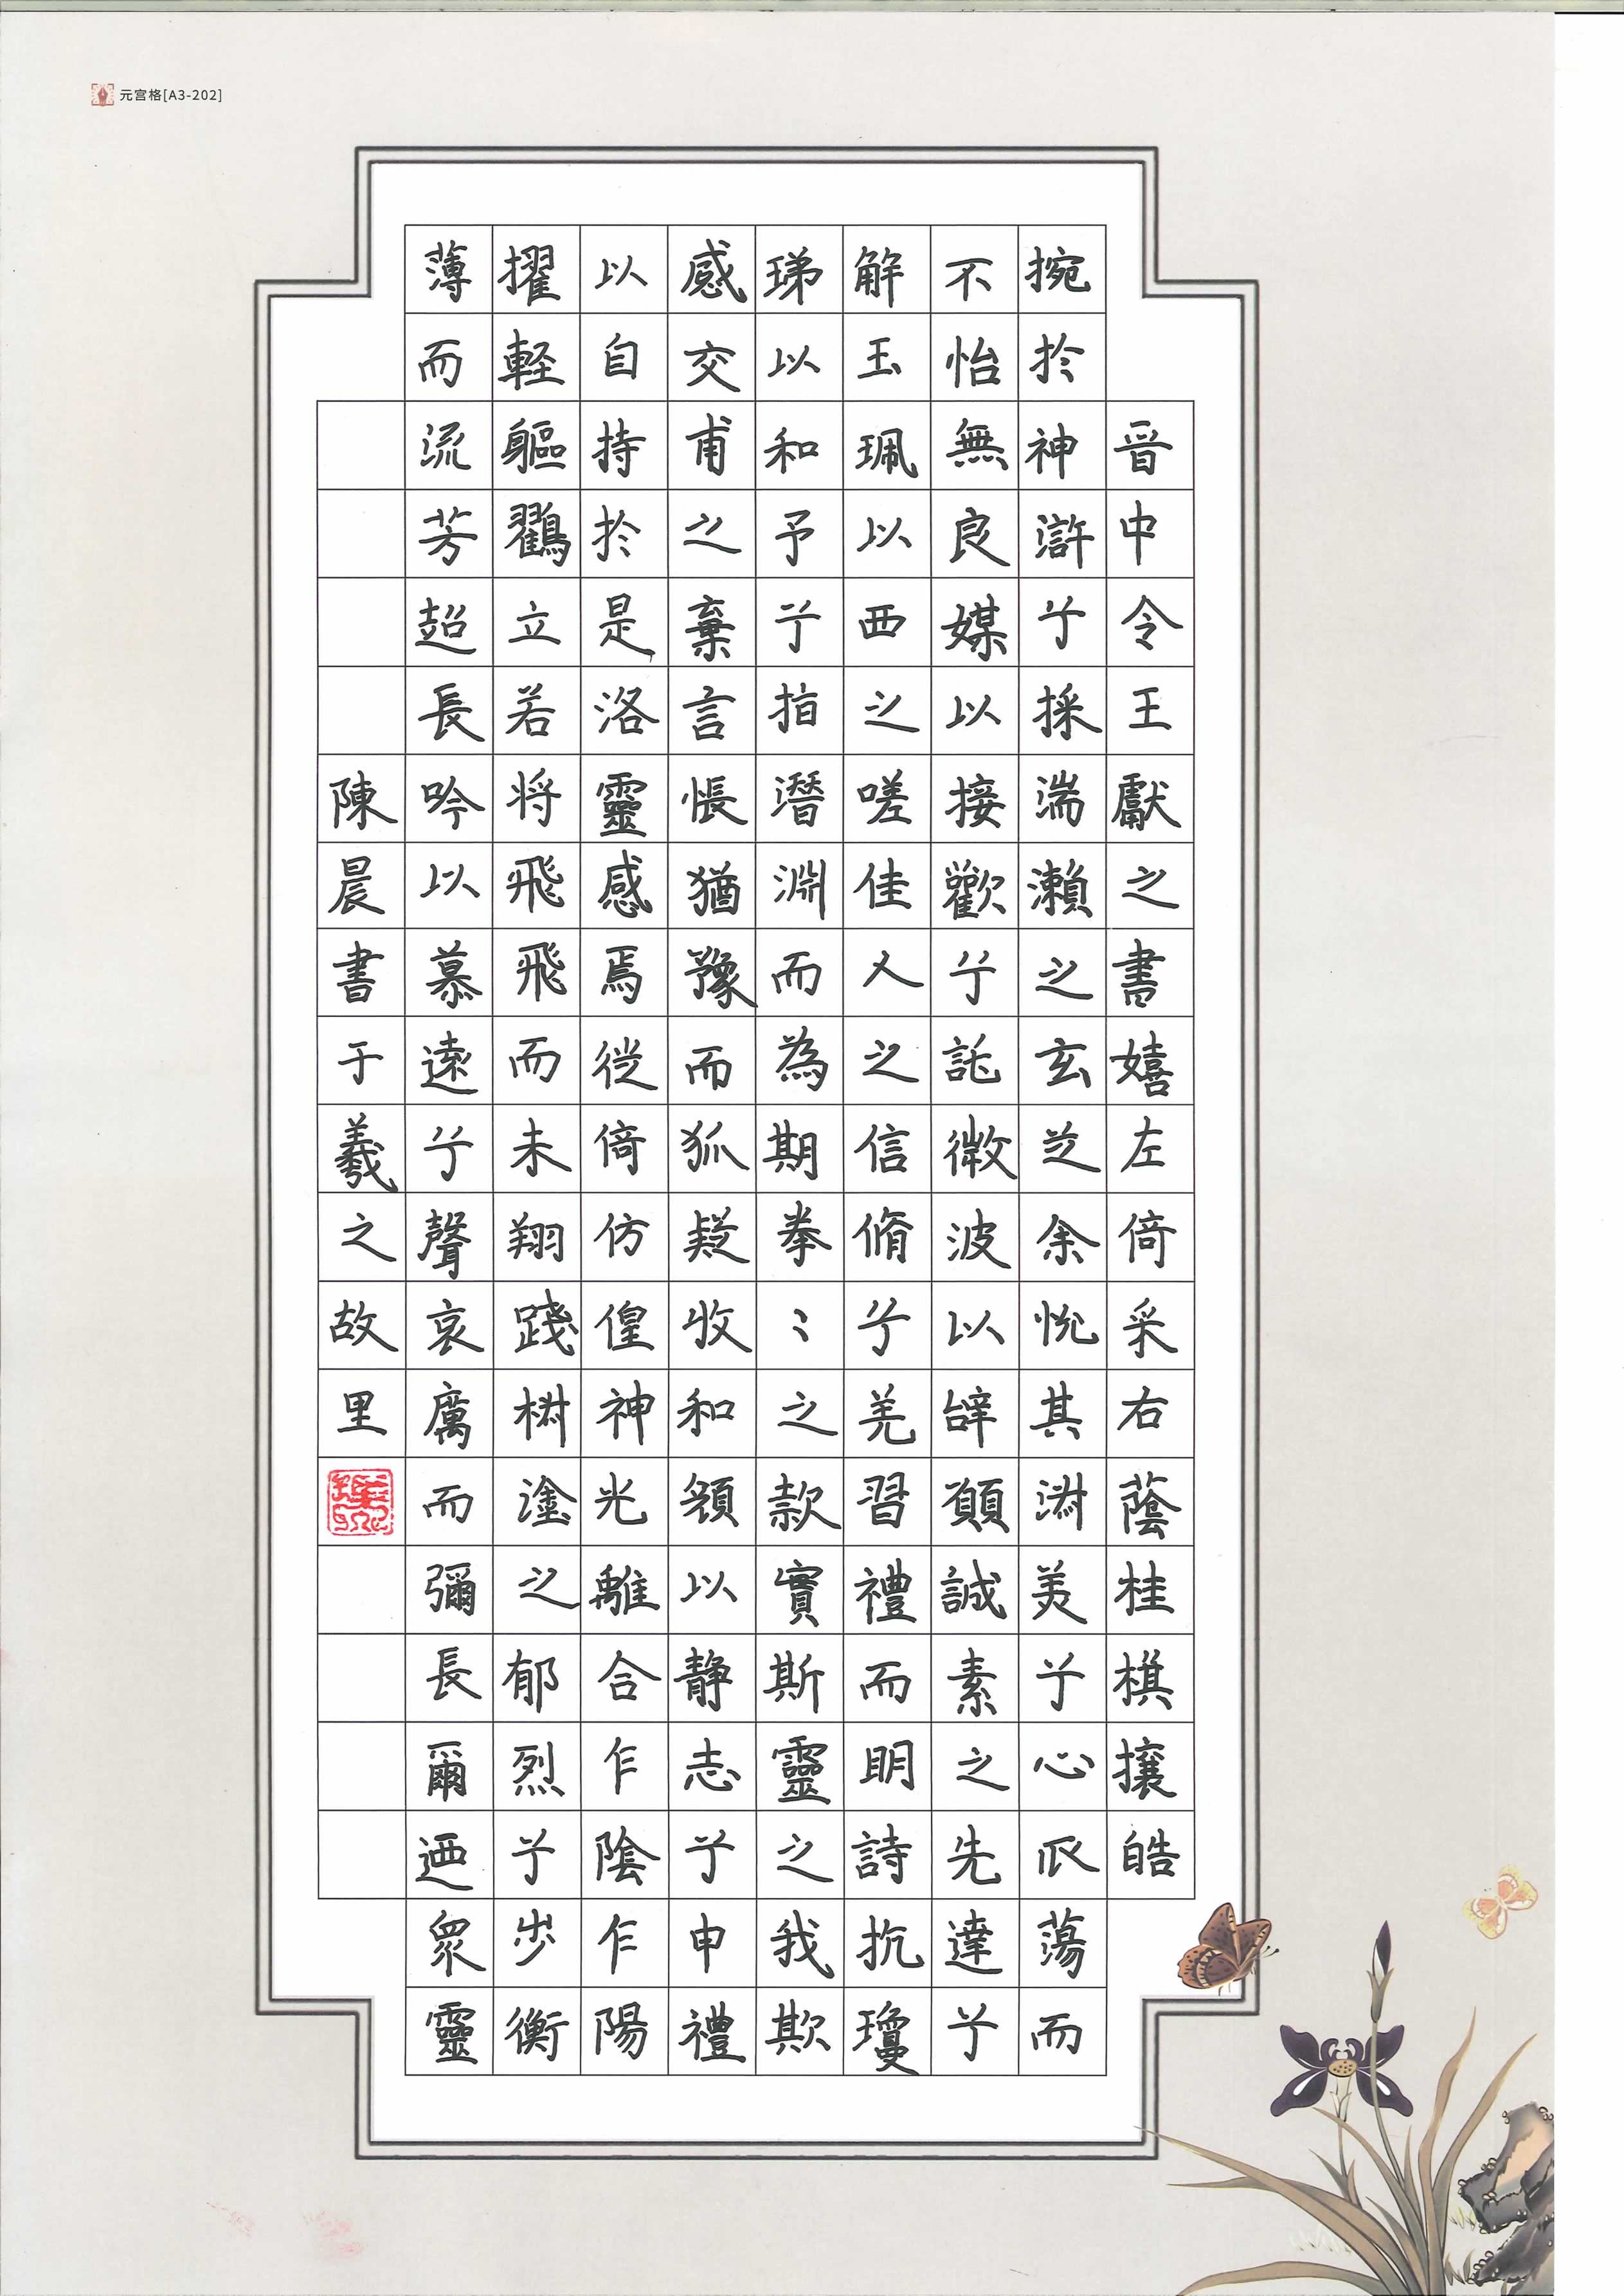 元宫格[A3-202]
晋中令王獻之書嬉左倚采右蔭桂棋攘皓
捥於神滸兮採湍瀨之玄芝余悅其淋美兮心 蕩而
不怡無良媒以接歡兮託微波以辝願誠素之先達兮
解玉珮以西之嗟佳人之信脩兮羌習禮而明詩抗瓊
珶以和予兮指潛淵而為期拳〻之款實斯靈之我欺
感交甫之棄言悵猶豫而狐疑收和顏以静志兮申禮
以自持於是洛靈感焉從倚仿偟神光離合乍陰乍陽
擢輕軀鸛立若将飛飛而未翔踐椒塗之郁烈兮步衡
薄而流芳超長吟以慕遠兮聲哀厲而彌長爾迺眾靈
陳晨書于羲之故里